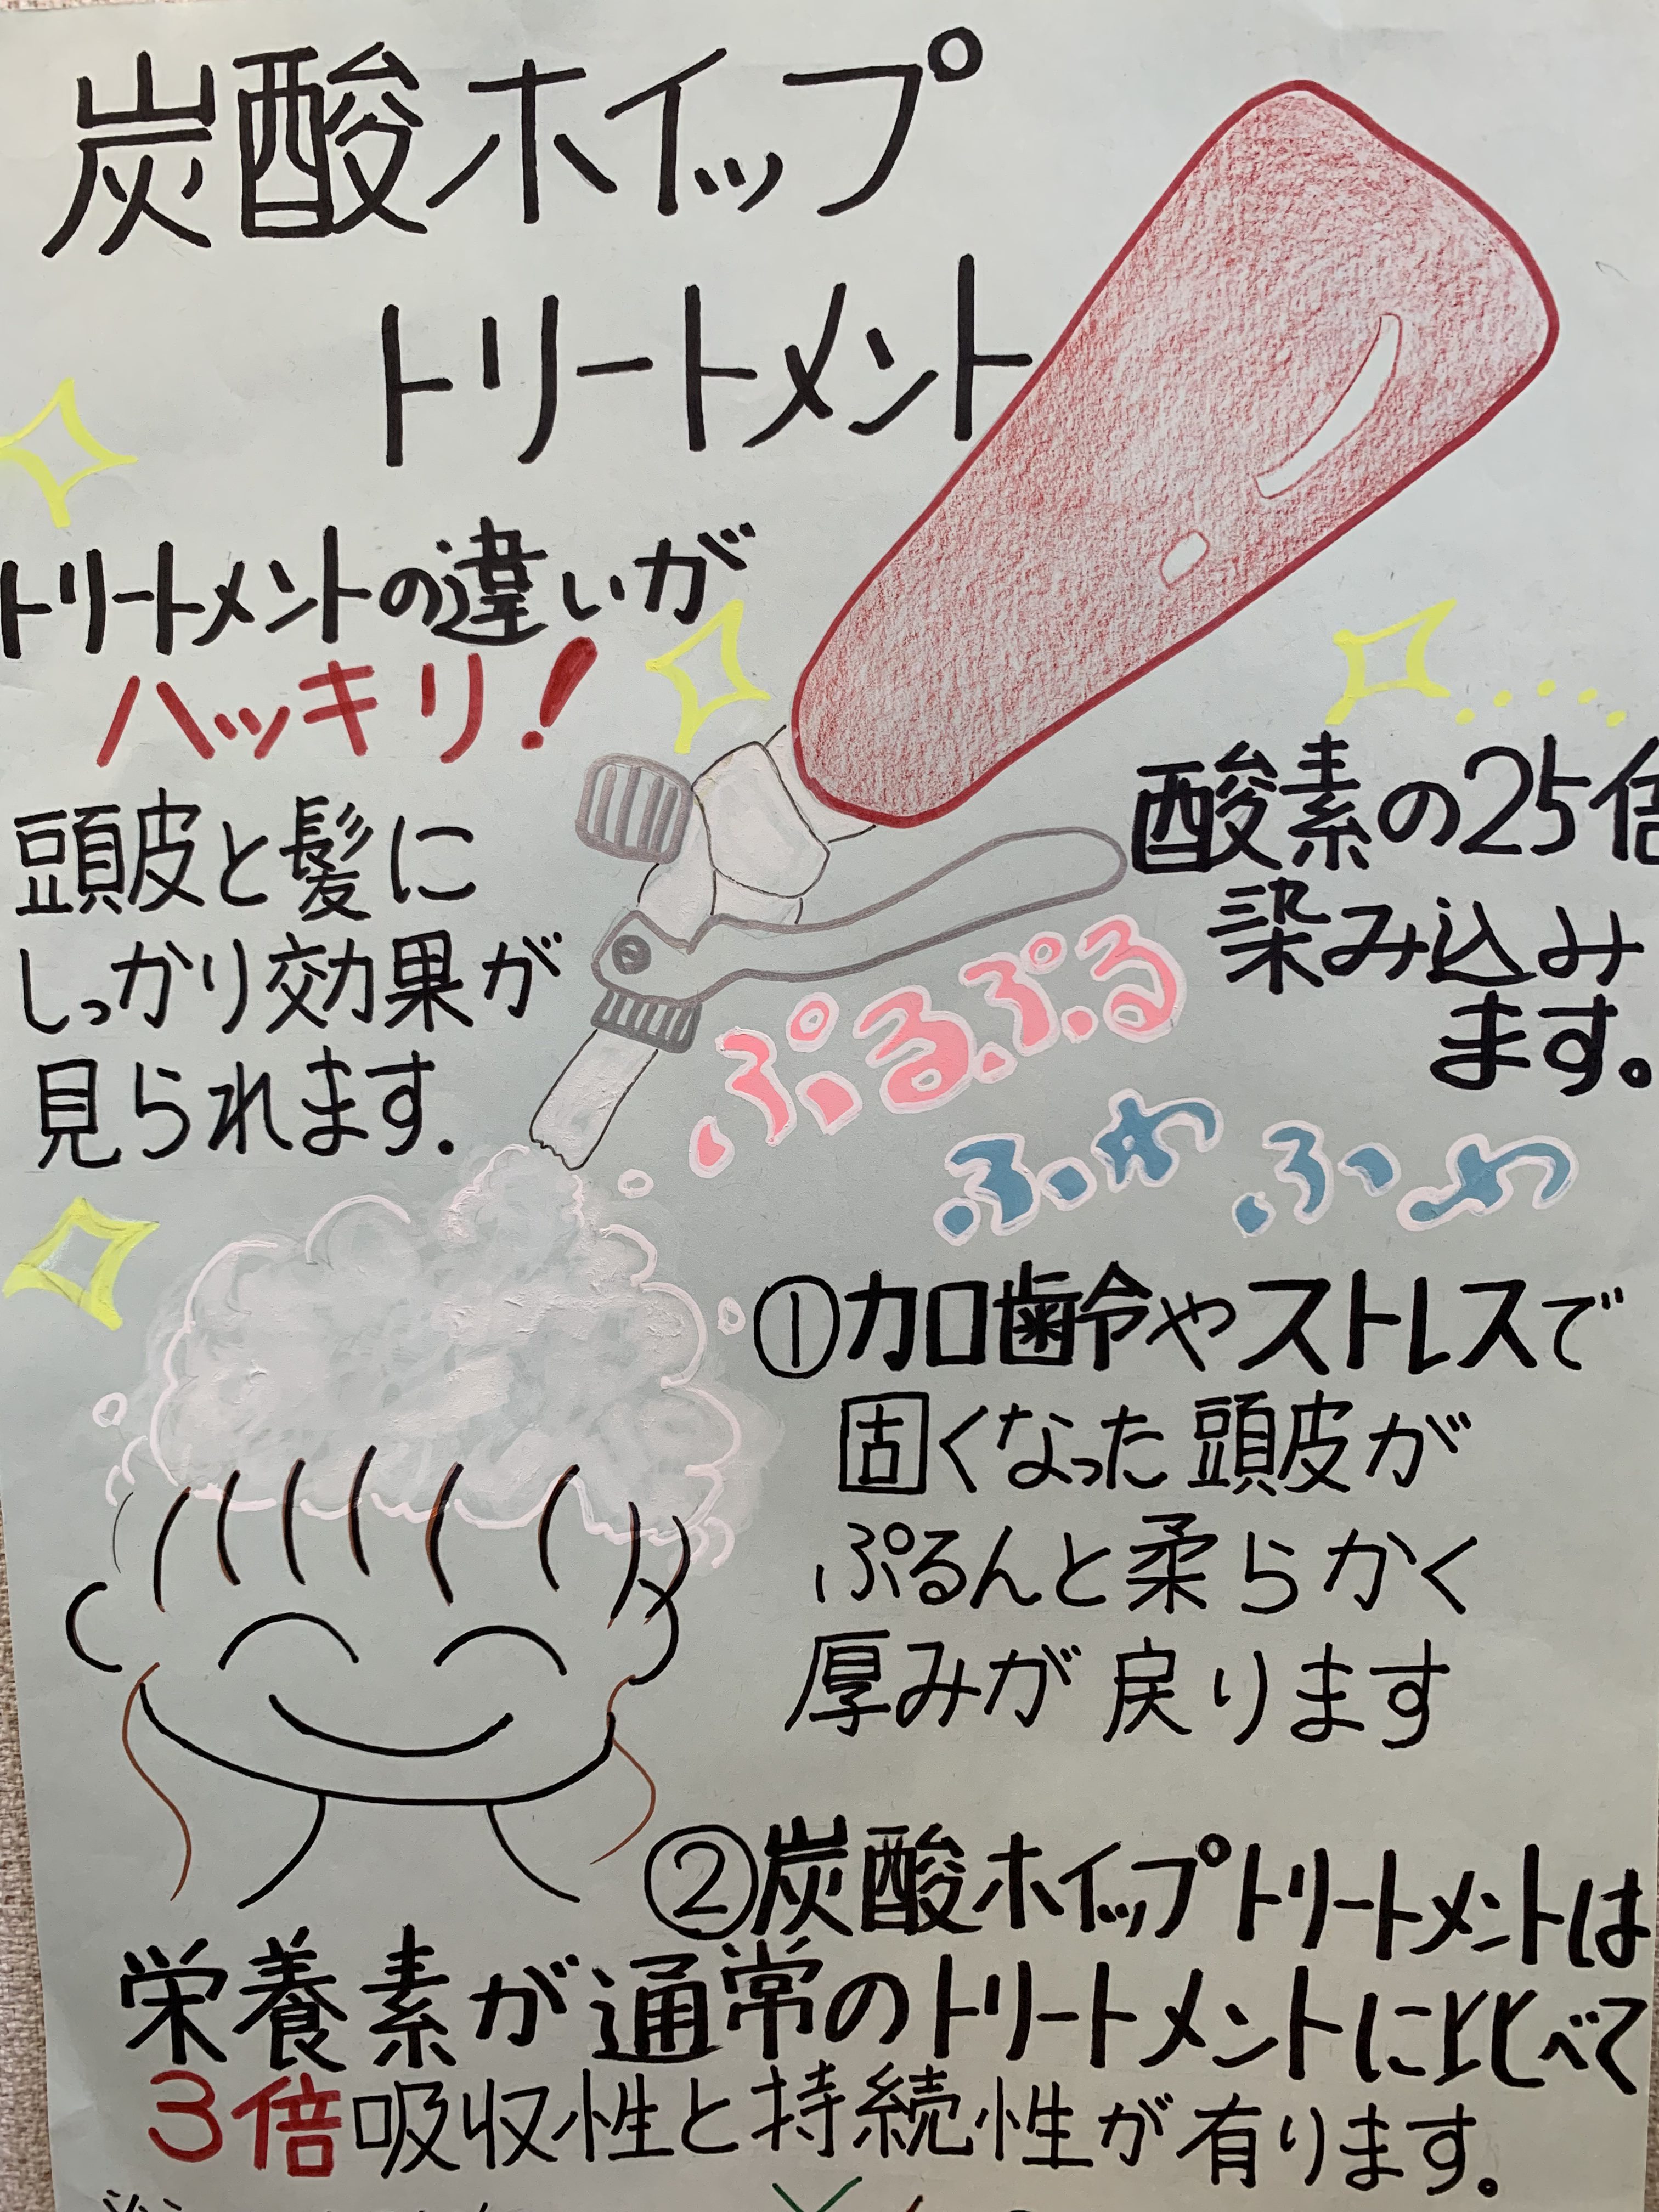 炭酸ホイップ
トリートメント
トリートメントの違いが
ハッキリ!
頭皮と髪に
しっかり効果が
見られます.
酸素の25倍
染み込み
ます。
ぷるぷる
ふわふわ
①加齢やストレスで
固くなった頭皮が
ぷるんと柔らかく
厚みが戻ります
②炭酸ホイップトリートメントは
栄養素が通常のトリートメントに比べて
3倍吸収性と持続性が有ります。